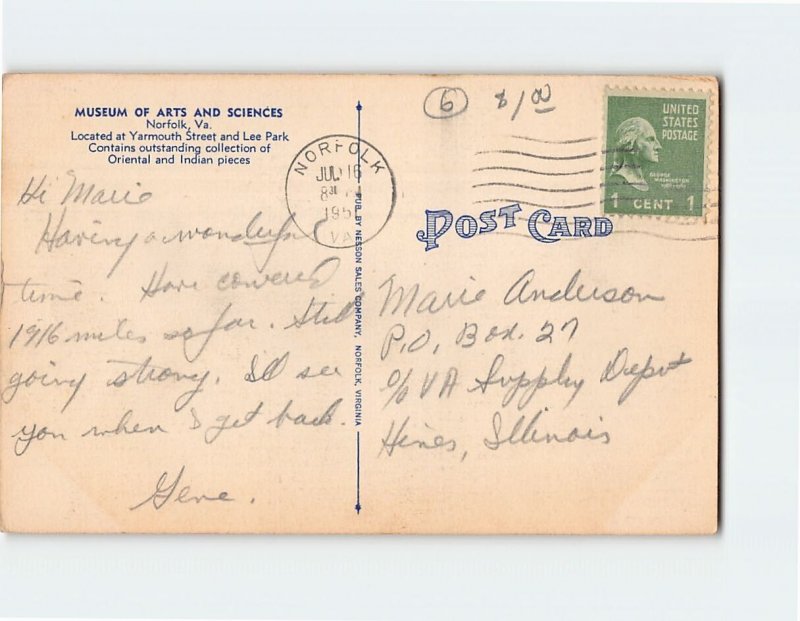 MUSEUM OF ARTS AND SCIENCES
Norfolk, Va.
Located at Yarmouth Street and Lee Park
Contains outstanding collection of
Oriental and Indian pieces
Hi Marie
Having a wonderful
time. Have covered
1916 miles so far. Still
going strong. I'll see
you when I get back.
Gene.
NORFOLK
JUL 16
8 30
195
VA
PUB. BY NESSON SALES COMPANY, NORFOLK, VIRGINIA
6 $1.00
UNITED
STATES
POSTAGE
GEORGE
WASHINGTON
1 CENT 1
POST CARD
Marie Anderson
P.O. Box. 27
c/o VA Supply Depot
Hines, Illinois